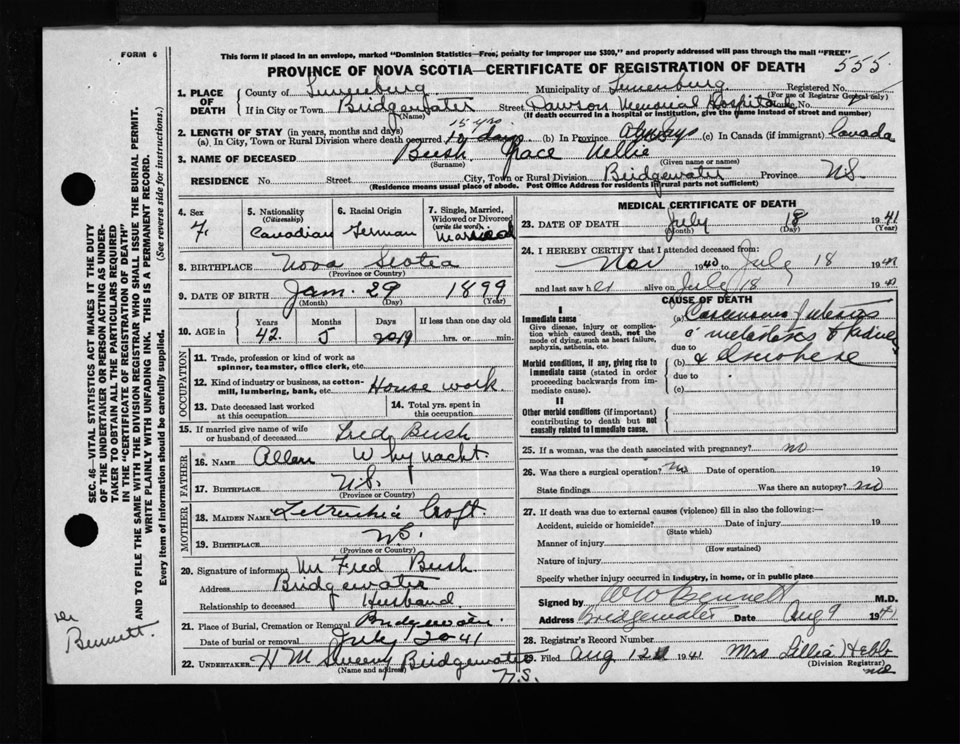 FORM 6
This form if placed in an envelope, marked "Dominion Statistics—Free, penalty for improper use $300," and properly addressed will pass through the mail "FREE"
PROVINCE OF NOVA SCOTIA—CERTIFICATE OF REGISTRATION OF DEATH 555
1. PLACE OF DEATH County of Lunenburg Municipality of Lunenburg Registered No.
(For use of Registrar General only)
If in City or Town Bridgewater (Name) Street Dawson Memorial Hospital House No.
(If death occurred in a hospital or institution, give the name instead of street and number)
2. LENGTH OF STAY (in years, months and days) 15 yrs
(a) In City, Town or Rural Division where death occurred 10 days (b) In Province Always (c) In Canada (if immigrant) Canada
3. NAME OF DECEASED Bush Grace Nellie
(Surname) (Given name or names)
RESIDENCE No. Street City, Town or Rural Division Bridgewater Province N.S.
(Residence means usual place of abode. Post Office Address for residents in rural parts not sufficient)
4. Sex F. 5. Nationality (Citizenship) Canadian 6. Racial Origin German 7. Single, Married, Widowed or Divorced (write the word) Married
8. BIRTHPLACE Nova Scotia
(Province or Country)
9. DATE OF BIRTH Jan. 29 1899
(Month) (Day) (Year)
10. AGE in Years 42. Months 5 Days 19 If less than one day old hrs. or min.
OCCUPATION
11. Trade, profession or kind of work as spinner, teamster, office clerk, etc.
12. Kind of industry or business, as cotton-mill, lumbering, bank, etc. House work.
13. Date deceased last worked at this occupation
14. Total yrs. spent in this occupation
15. If married give name of wife or husband of deceased Fred Bush
FATHER
16. NAME Allan Whynacht
17. BIRTHPLACE N.S.
(Province or Country)
MOTHER
18. MAIDEN NAME Croft
19. BIRTHPLACE N.S.
(Province or Country)
20. Signature of informant Mr Fred Bush
Address Bridgewater
Relationship to deceased Husband
21. Place of Burial, Cremation or Removal Bridgewater
Date of burial or removal July 20 41
22. UNDERTAKER H M Sweeny Bridgewater
(Name and address) N.S.
MEDICAL CERTIFICATE OF DEATH
23. DATE OF DEATH July 18 1941
(Month) (Day) (Year)
24. I HEREBY CERTIFY that I attended deceased from:
Nov 1940 to July 18 1941
and last saw her alive on July 18 1941
CAUSE OF DEATH
Immediate cause
Give disease, injury or complication which caused death, not the mode of dying, such as heart failure, asphyxia, asthenia, etc.
(a) Carcinoma of uterus
c̄ metastases to kidney
due to
Morbid conditions, if any, giving rise to immediate cause (stated in order proceeding backwards from immediate cause).
(b) & elsewhere
due to
(c)
II
Other morbid conditions (if important) contributing to death but not causally related to immediate cause.
25. If a woman, was the death associated with pregnancy? no
26. Was there a surgical operation? no Date of operation 19
State findings Was there an autopsy? no
27. If death was due to external causes (violence) fill in also the following:—
Accident, suicide or homicide? Date of injury 19
(State which)
Manner of injury
(How sustained)
Nature of injury
Specify whether injury occurred in industry, in home, or in public place
Signed by W W Bennett M.D.
Address Bridgewater Date Aug 9 1941
28. Registrar's Record Number
29. Filed Aug 12 1941 Mrs Lillia Hebb
(Division Registrar)
SEC. 46—VITAL STATISTICS ACT MAKES IT THE DUTY OF THE UNDERTAKER OR PERSON ACTING AS UNDERTAKER TO OBTAIN ALL THE PARTICULARS REQUIRED IN THE "CERTIFICATE OF REGISTRATION OF DEATH"
AND TO FILE THE SAME WITH THE DIVISION REGISTRAR WHO SHALL ISSUE THE BURIAL PERMIT.
WRITE PLAINLY WITH UNFADING INK. THIS IS A PERMANENT RECORD.
Every item of information should be carefully supplied. (See reverse side for instructions.)
Dr
Bennett.